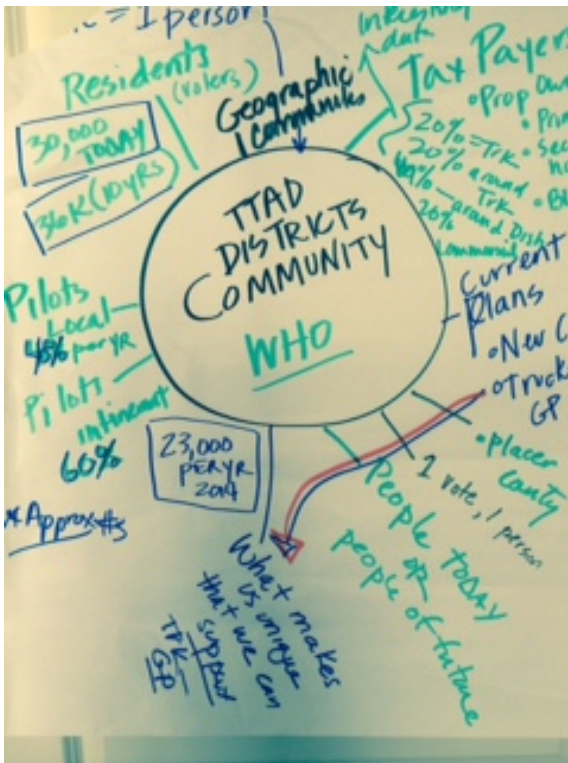 = 1 person!
Residents
(voters)
30,000
TODAY
36K (10 YRS)
Geographic
Communities
Interesting
data
Tax Payers
• Prop Own
20% = Trk
20% around
Trk
around Dist
20%
Commercial
TTAD
DISTRICTS
COMMUNITY
WHO
Pilots
Local
per YR
Pilots
itinerant
60%
23,000
PER YR
2014
* Approx #s
Current
Plans
• New C
• Truck
GP
• Placer
County
1 vote, 1 person
People TODAY
OR
people of future
What makes
us unique
that we can
support
TRK
GP